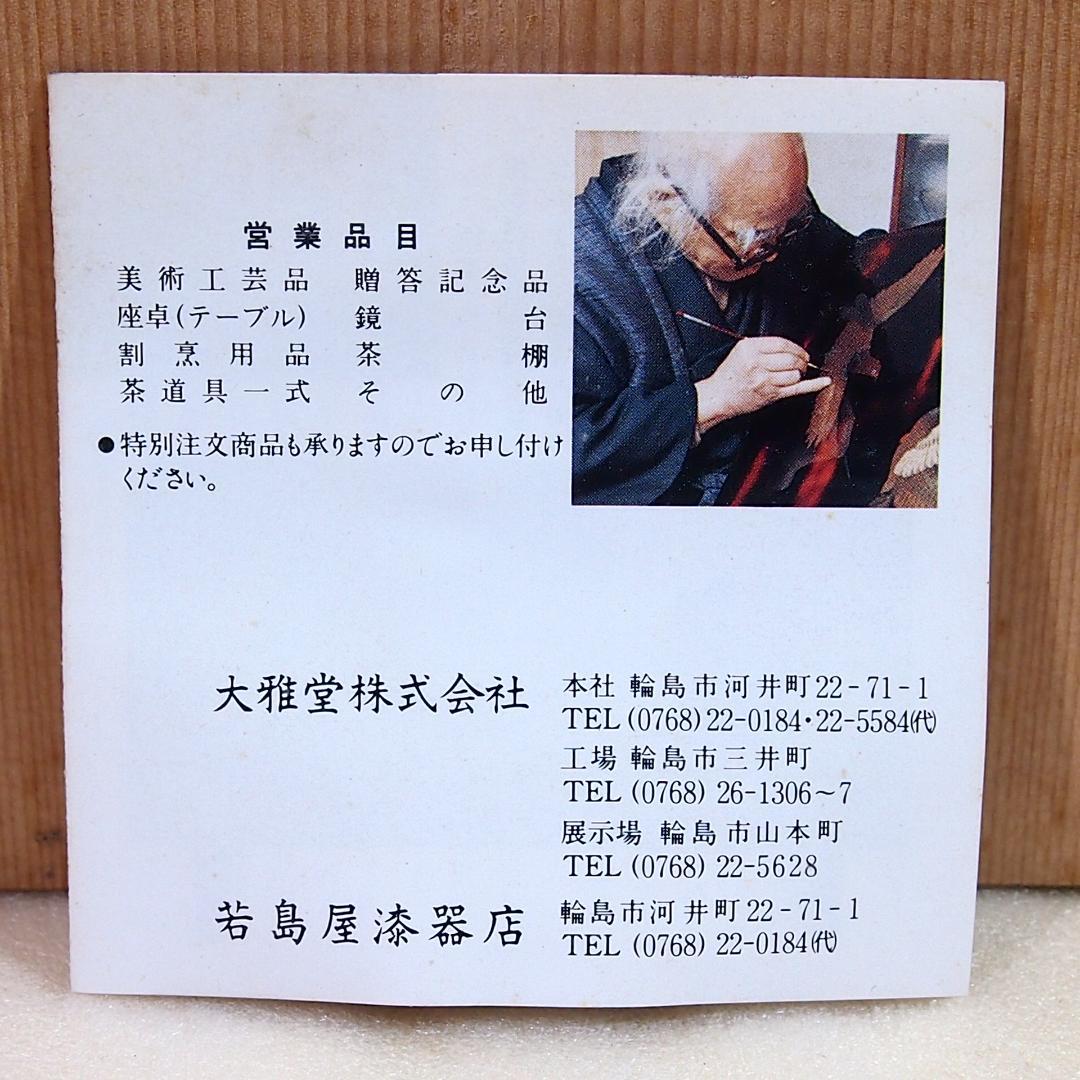 営業品目
美術工芸品 贈答記念品
座卓(テーブル) 鏡台
割烹用品 茶棚
茶道具一式 その他
●特別注文商品も承りますのでお申し付け
ください。
大雅堂株式会社 本社 輪島市河井町22-71-1
TEL (0768) 22-0184・22-5584㈹
工場 輪島市三井町
TEL (0768) 26-1306～7
展示場 輪島市山本町
TEL (0768) 22-5628
若島屋漆器店 輪島市河井町22-71-1
TEL (0768) 22-0184㈹